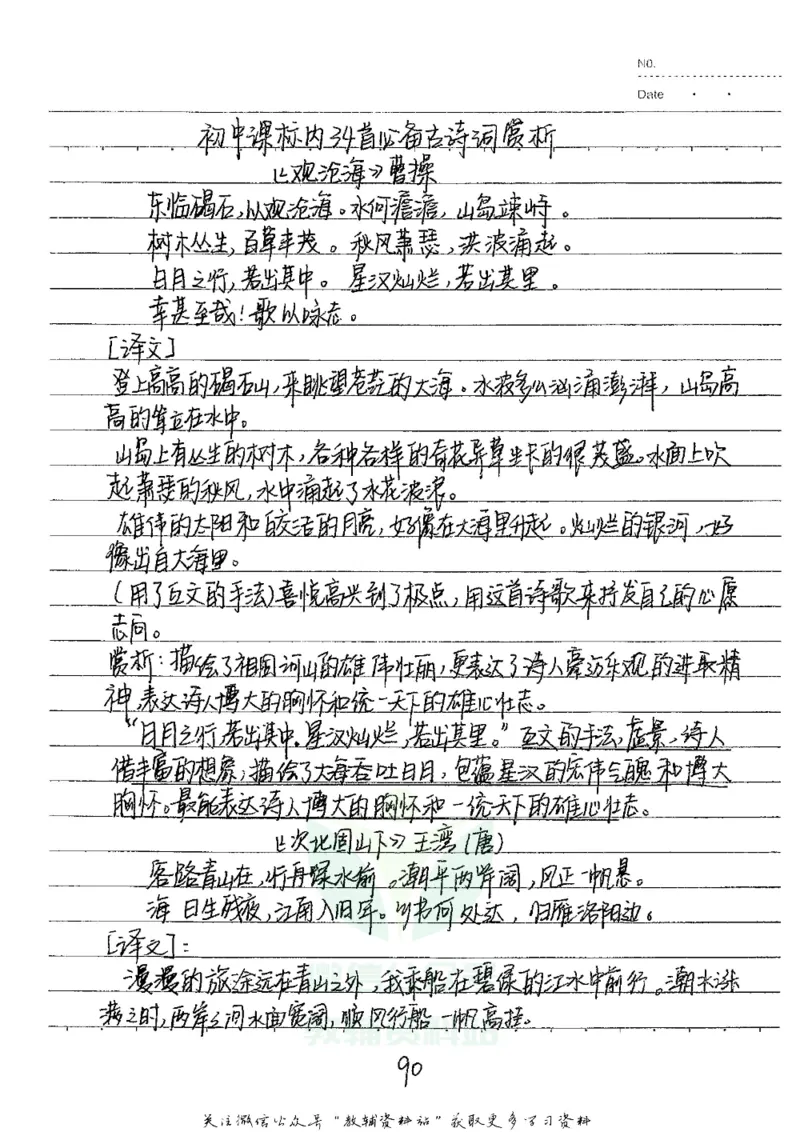 No.
Date
初中课标内34首必备古诗词赏析
《观沧海》曹操
东临碣石,以观沧海。水何澹澹,山岛竦峙。
树木丛生,百草丰茂。秋风萧瑟,洪波涌起。
日月之行,若出其中。星汉灿烂,若出其里。
幸甚至哉!歌以咏志。
[译文]
登上高高的碣石山,来眺望苍茫的大海。水波多么汹涌澎湃,山岛高
高的耸立在水中。
山岛上有丛生的树木,各种各样的奇花异草生长的很茂盛。水面上吹
起萧瑟的秋风,水中涌起了水花波浪。
雄伟的太阳和皎洁的月亮,好像在大海里升起。灿烂的银河,好
像出自大海里。
(用了互文的手法)喜悦高兴到了极点,用这首诗歌来抒发自己的心愿
志向。
赏析:描绘了祖国河山的雄伟壮丽,更表达了诗人豪迈乐观的进取精
神,表达诗人博大的胸怀和统一天下的雄心壮志。
“日月之行,若出其中。星汉灿烂,若出其里。”互文的手法,虚景,诗人
借丰富的想象,描绘了大海吞吐日月,包蕴星汉的宏伟气魄和博大
胸怀。最能表达诗人博大的胸怀和一统天下的雄心壮志。
《次北固山下》王湾(唐)
客路青山在,行舟绿水前。潮平两岸阔,风正一帆悬。
海日生残夜,江南入旧年。乡书何处达,归雁洛阳边。
[译文]:
漫漫的旅途远在青山之外,我乘船在碧绿的江水中前行。潮水涨
满之时,两岸之间水面宽阔,顺风行船一帆高挂。
90
关注微信公众号“教辅资料站”获取更多学习资料
教辅资料站